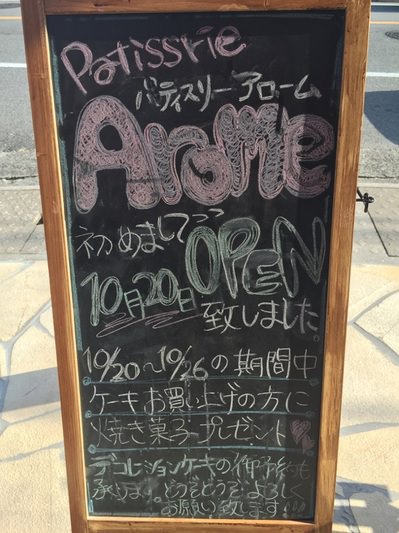 Patissrie
パティスリー アローム
Arome
初めまして
10月20日 OPEN
致しました。
10/20〜10/26の期間中
ケーキお買い上げの方に
焼き菓子プレゼント
デコレションケーキの御予約も
承ります。どうぞどうぞよろしく
お願い致します!!!